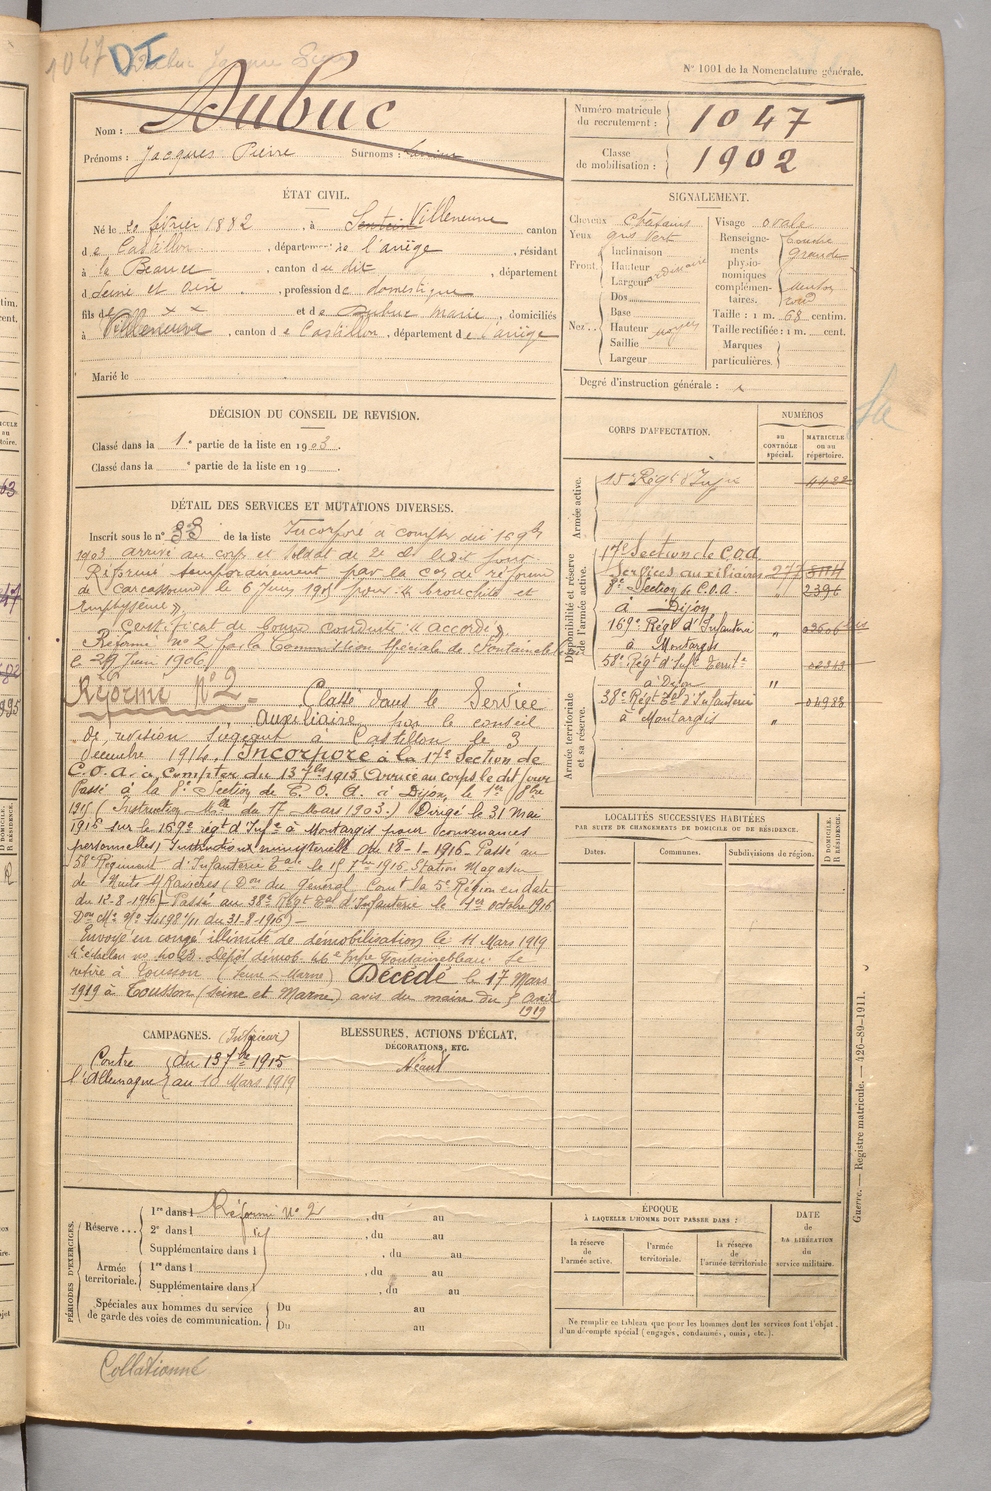 1047 DI
N° 1001 de la Nomenclature générale.
Nom : Dubuc
Prénoms : Jacques Pierre Surnoms :
Numéro matricule du recrutement : 1047
Classe de mobilisation : 1902
ÉTAT CIVIL.
Né le 20 février 1882, à Sentein Villeneuve canton
de Castillon, département de l'ariège, résidant
à la Beauce, canton du dit, département
d Seine et oise, profession de domestique
fils de x x et de Dubuc marie, domiciliés
à Villeneuve, canton de Castillon, département de l'ariège
Marié le
SIGNALEMENT.
Cheveux châtains
Yeux gris vert
Front. Inclinaison
Hauteur ordinaire
Largeur
Nez. Dos
Base
Hauteur moyen
Saillie
Largeur
Visage ovale
Renseignements physionomiques complémentaires. bouche grande menton rond
Taille : 1 m. 68 centim.
Taille rectifiée : 1 m. cent.
Marques particulières.
Degré d'instruction générale :
DÉCISION DU CONSEIL DE REVISION.
Classé dans la 1e partie de la liste en 1903.
Classé dans la e partie de la liste en 19
DÉTAIL DES SERVICES ET MUTATIONS DIVERSES.
Inscrit sous le n° 33 de la liste Incorporé à compter du 16 9bre
1903 arrivé au corps et soldat de 2e cl. ledit jour
Réformé temporairement par la Con de réforme
de Carcassonne le 6 Juin 1905 pour « bronchite et
emphysème ».
Certificat de bonne conduite « accordé ».
Réformé n° 2 par la Commission Spéciale de Fontainebleau
le 29 Juin 1906
Réforme N° 2 Classé dans le Service
auxiliaire par le conseil
de revision siégeant à Castillon le 3
décembre 1914. Incorporé à la 17e Section de
C.O.A. à compter du 13 7bre 1915 Arrivé au corps le dit jour
Passé à la 8e Section de C.O.A. à Dijon, le 1er 8bre
1915 (Instruction Mlle du 17 Mars 1903.) Dirigé le 31 Mai
1916 sur le 169e régt d'Infie à Montargis pour (convenances
personnelles) Instruction ministérielle du 18-1-1916. Passé au
58e Régiment d'Infanterie Tale le 15 7bre 1916 Station Magasin
de Nuits s/Ravières (Don du général Comt la 5e Région en date
du 12-8-1916) Passé au 38e Régt Tal d'Infanterie le 1er octobre 1916
Don Mle n° 14198 1/11 du 31-8-1916) -
Envoyé en congé illimité de démobilisation le 11 Mars 1919
Dépôt démob. 46e Infie Fontainebleau. Se
retire à Tousson (Seine-Marne) Décédé le 17 Mars
1919 à Tousson (Seine et Marne) avis du maire du 5 Avril
1919
CORPS D'AFFECTATION.
NUMÉROS
au CONTRÔLE spécial.
MATRICULE ou au répertoire.
Armée active.
15e Régt d'Infie 4422
Disponibilité et réserve de l'armée active.
17e Section de C.O.A.
Services auxiliaires 277
8e Section de C.O.A. " 2396
à Dijon
169e Régt d'Infanterie "
à Montargis
58e Régt d'Inft Territe 02343
à Dijon "
Armée territoriale et sa réserve.
38e Régt Tal d'Infanterie 04988
à Montargis "
LOCALITÉS SUCCESSIVES HABITÉES
PAR SUITE DE CHANGEMENTS DE DOMICILE OU DE RÉSIDENCE.
D DOMICILE. R RÉSIDENCE.
Dates. Communes. Subdivisions de région.
CAMPAGNES. (Intérieur)
Contre l'Allemagne du 13 7bre 1915
au 10 Mars 1919
BLESSURES, ACTIONS D'ÉCLAT,
DÉCORATIONS, ETC.
Néant
PÉRIODES D'EXERCICES.
Réserve... 1re dans l Réformé N° 2, du au
2e dans l, du au
Supplémentaire dans l, du au
Armée territoriale. 1re dans l, du au
Supplémentaire dans l, du au
Spéciales aux hommes du service de garde des voies de communication. Du au
Du au
ÉPOQUE
À LAQUELLE L'HOMME DOIT PASSER DANS :
la réserve de l'armée active.
l'armée territoriale.
la réserve de l'armée territoriale
DATE de LA LIBÉRATION du service militaire.
Ne remplir ce tableau que pour les hommes dont les services font l'objet
d'un décompte spécial (engagés, condamnés, omis, etc.).
Guerre. — Registre matricule. — 426-89-1911.
Collationné